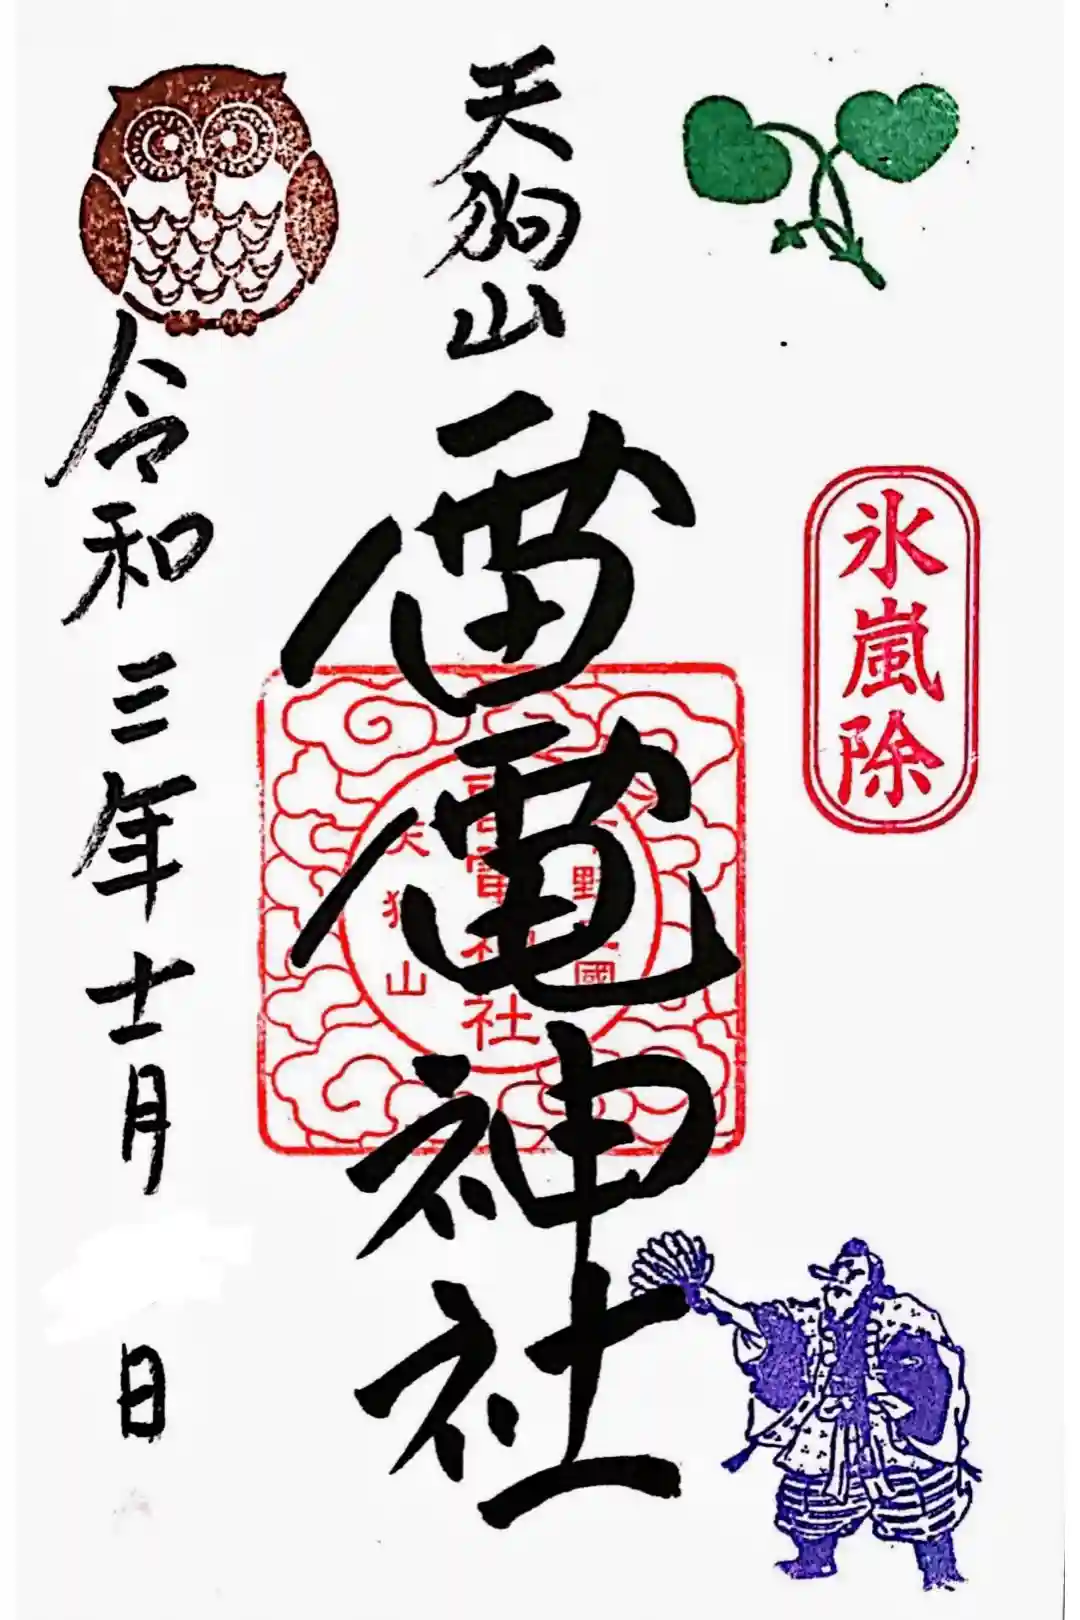 氷嵐除
天狗山
雷電神社
下野國
雷電神社
天狗山
令和三年十一月
日